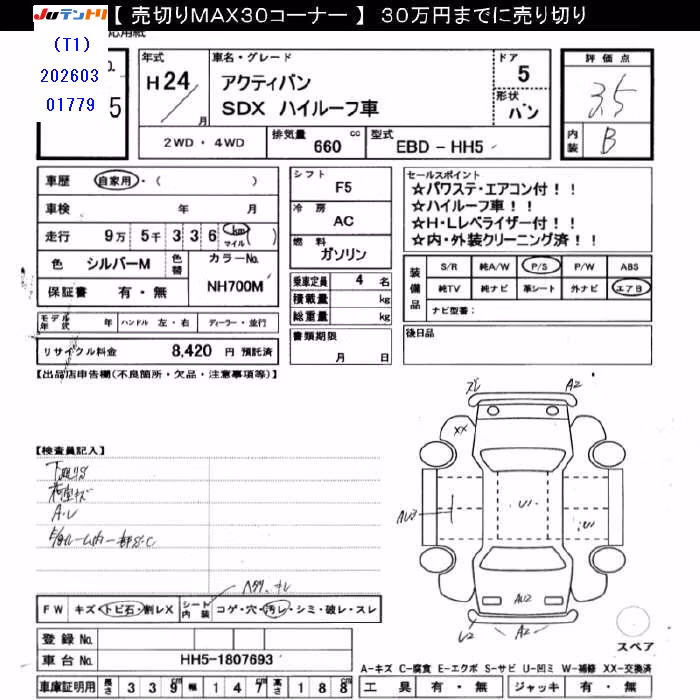 JUテントリ 【 売切りMAX30コーナー 】 30万円までに売り切り
(T1)
202603
01779
応用紙
No.
5
年式
H 24
月
車名・グレード
アクティバン
SDX ハイルーフ車
ドア
5
形状
バン
評価点
3.5
内装
B
2WD ・ 4WD
排気量
660 cc
型式
EBD - HH5
車歴 自家用・( )
車検 年 月
走行 9万 5千 3 3 6 km マイル ( )
色 シルバーM
色替
カラーNo.
NH700M
保証書 有・無
シフト
F5
冷房
AC
燃料
ガソリン
セールスポイント
☆パワステ・エアコン付!!
☆ハイルーフ車!!
☆H・Lレベライザー付!!
☆内・外装クリーニング済!!
装備品
S/R 純A/W P/S P/W ABS
純TV 純ナビ 革シート 外ナビ エアB
ナビ型番:
乗車定員 4 名
積載量 kg
総重量 kg
モデル年式 年 ハンドル 左・右 ディーラー・並行
リサイクル料金 8,420 円 預託済
書類期限
月 日
後日品
【出品店申告欄(不良箇所・欠品・注意事項等)】
【検査員記入】
A・レ
ズレ
A2
XX
AU3
U1
U1
AU2
U2
A2
FW キズ・トビ石・割レX
シート内装 コゲ・穴・汚レ・シミ・破レ・スレ
登録 No.
車台 No. HH5-1807693
車庫証明用 長さ 3 3 9 cm 幅 1 4 7 cm 高さ 1 8 8 cm
スペア
A-キズ C-腐食 E-エクボ S-サビ U-凹ミ W-補修 XX-交換済
工具 有・無 ジャッキ 有・無